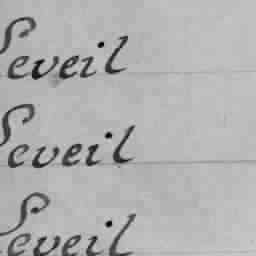 Seveil
Seveil
Seveil